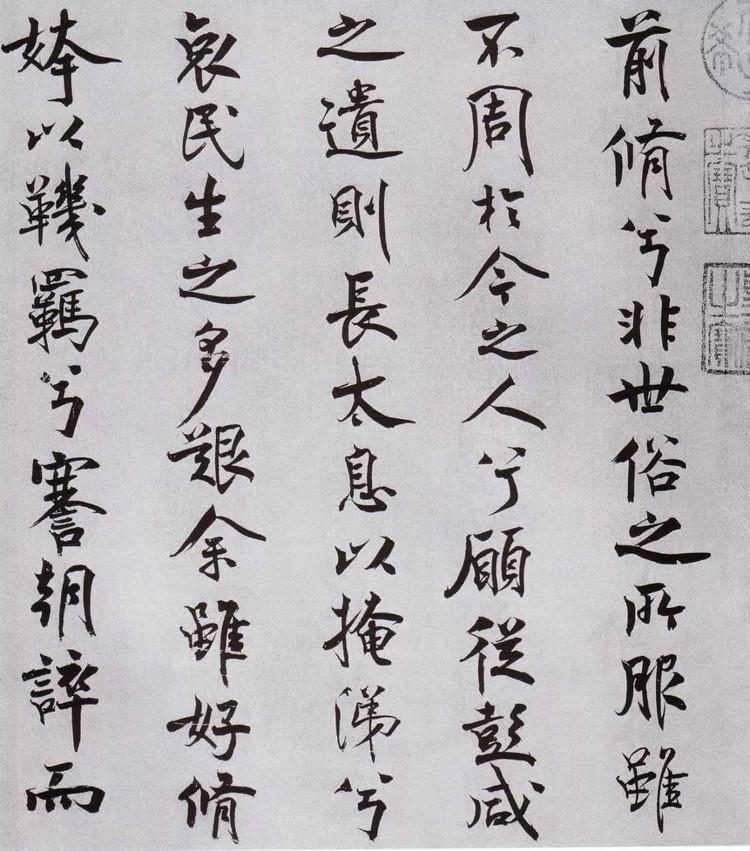 前脩兮非世俗之所服雖
不周於今之人兮願從彭咸
之遺則長太息以掩涕兮
哀民生之多艱余雖好脩
姱以鞿羈兮謇朝誶而